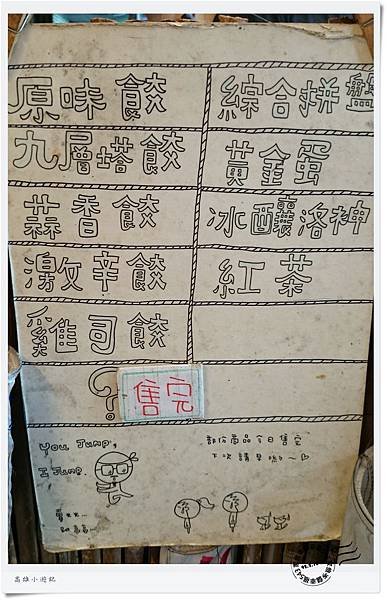 原味餃 綜合拼盤
九層塔餃 黃金蛋
蒜香餃 冰釀洛神
激辛餃 紅茶
雞司餃
?
售完
You Jump,
I Jump.
部份商品今日售完
下次請早喲~
高雄小遊記